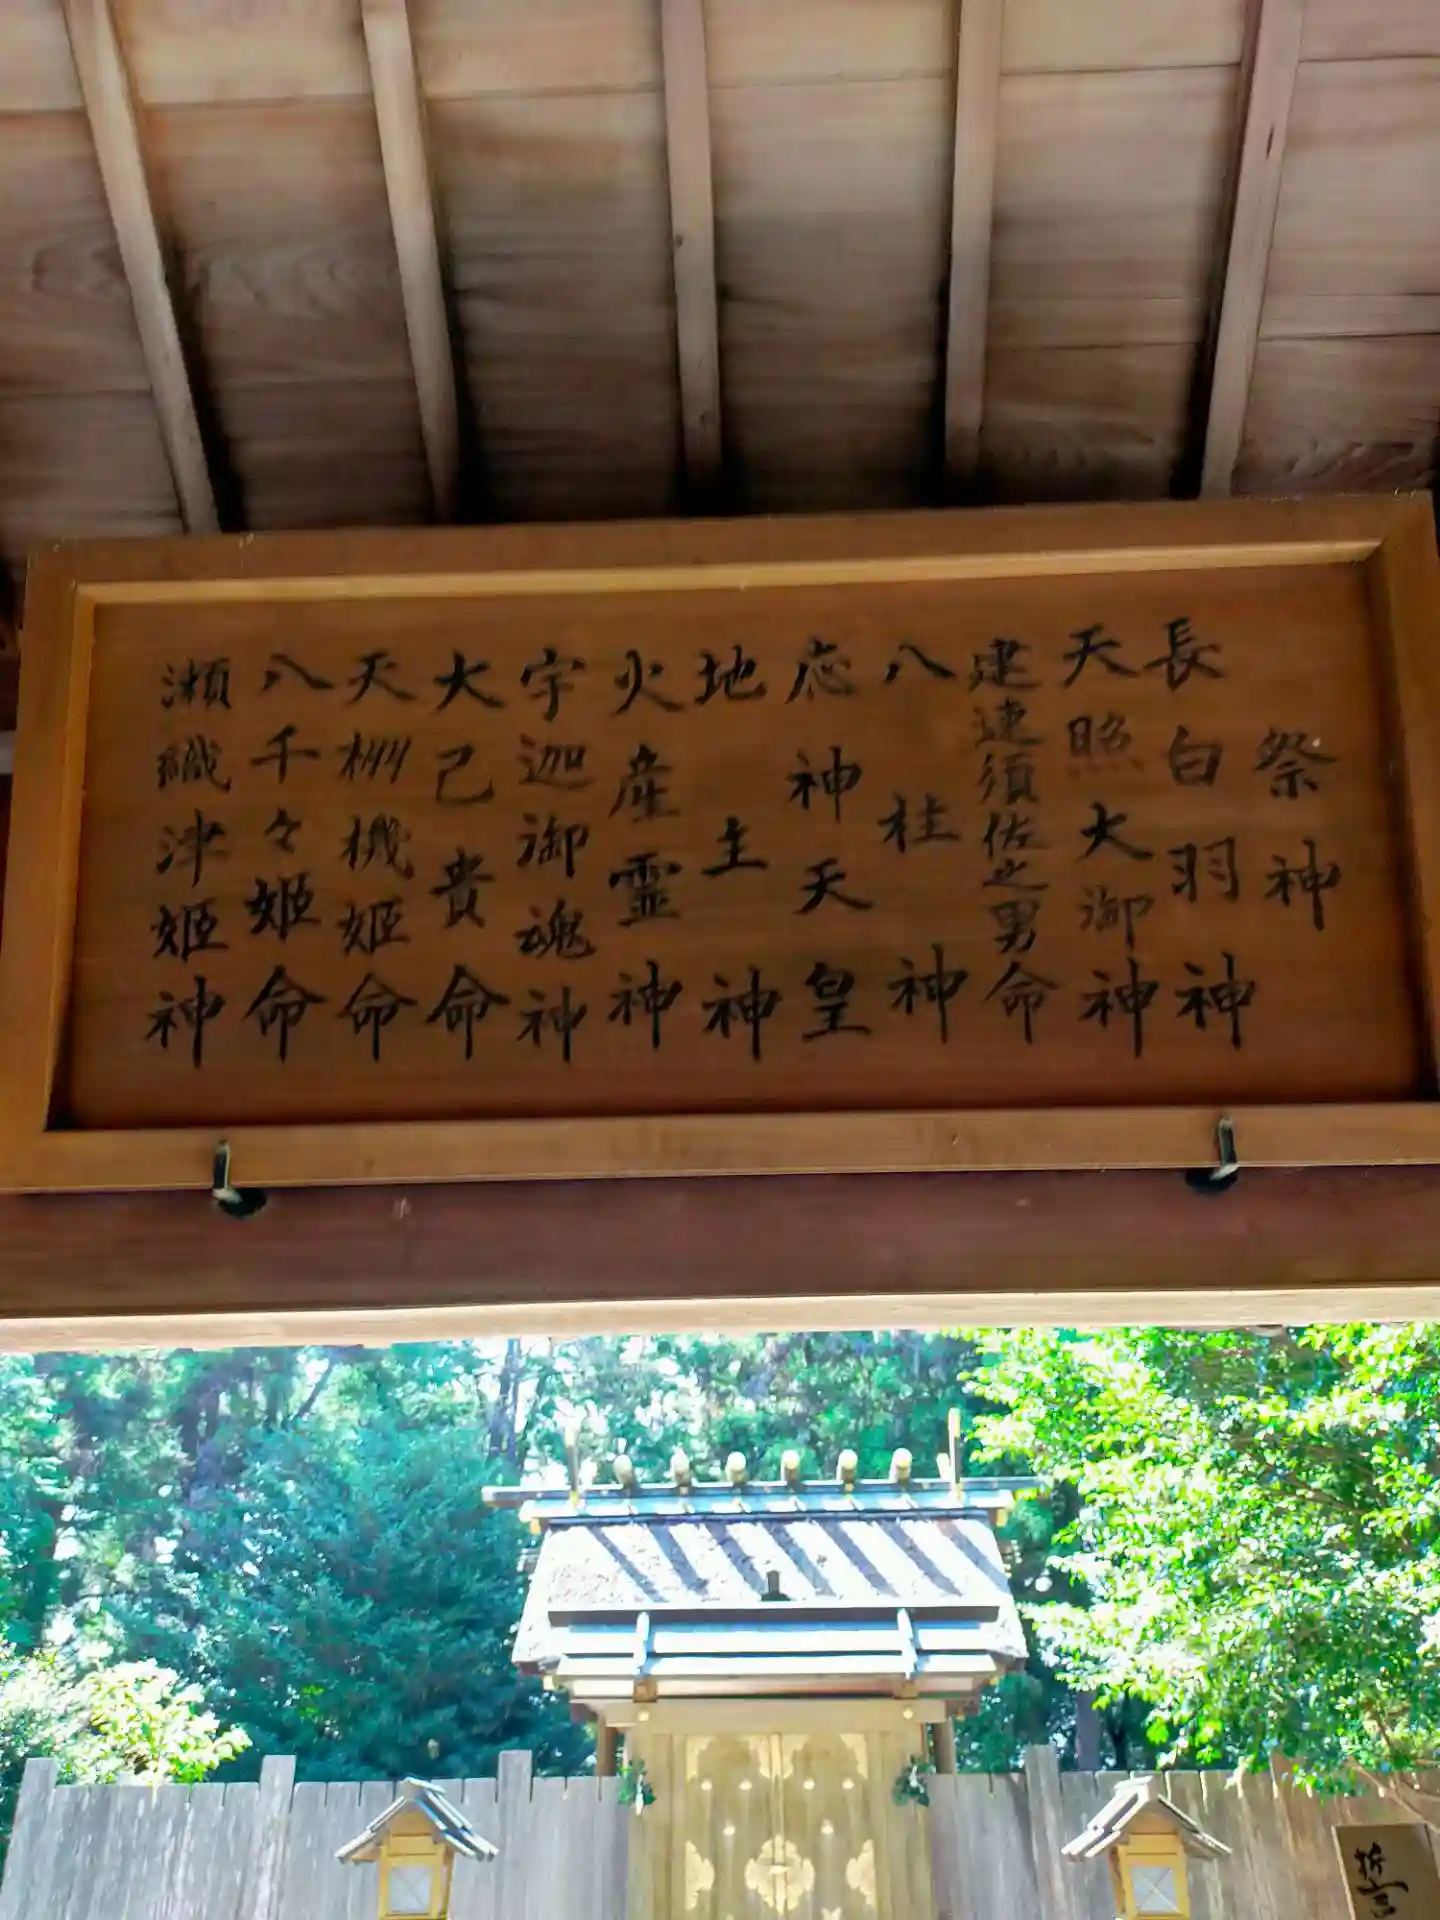 祭神
長白羽神
天照大御神
建速須佐之男命
八柱神
応神天皇
地主神
火産霊神
宇迦御魂神
大己貴命
天棚機姫命
八千々姫命
瀬織津姫神
誓